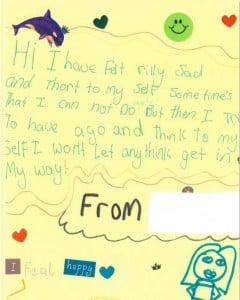 Hi I have Felt rilly Sad
and thort to my self Sometime's
that I can not Do But then I try
To have ago and think To my
Self I wont Let any think get in
My way!
From
I Feal happy